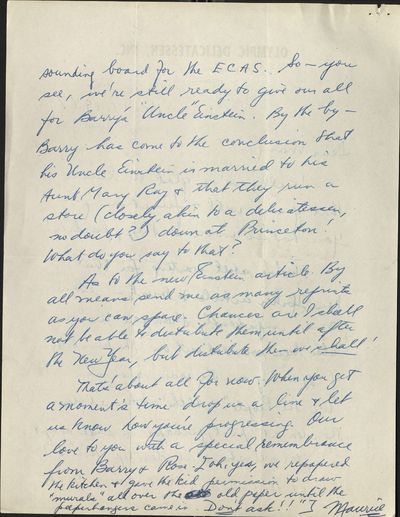 sounding board for the ECAS. So — you
see, we're still ready to give our all
for Barry's "Uncle" Einstein. By the by —
Barry has come to the conclusion that
his Uncle Einstein is married to his
Aunt Mary Ray & that they run a
store (closely akin to a delicatessen,
no doubt?) down at Princeton.
What do you say to that?
As to the new Einstein article. By
all means send me as many reprints
as you can spare. Chances are I shall
not be able to distribute them until after
the New Year, but distribute them we shall!
That's about all for now. When you get
a moment's time drop us a line & let
us know how you're progressing. Our
love to you with a special remembrance
from Barry & Rose. I oh, yes, we repapered
the kitchen & gave the kid permission to draw
"murals" all over the old paper until the
paperhangers came in. Don't ask!!"]
Maurice
OLYMPIC DELICATESSEN, INC.